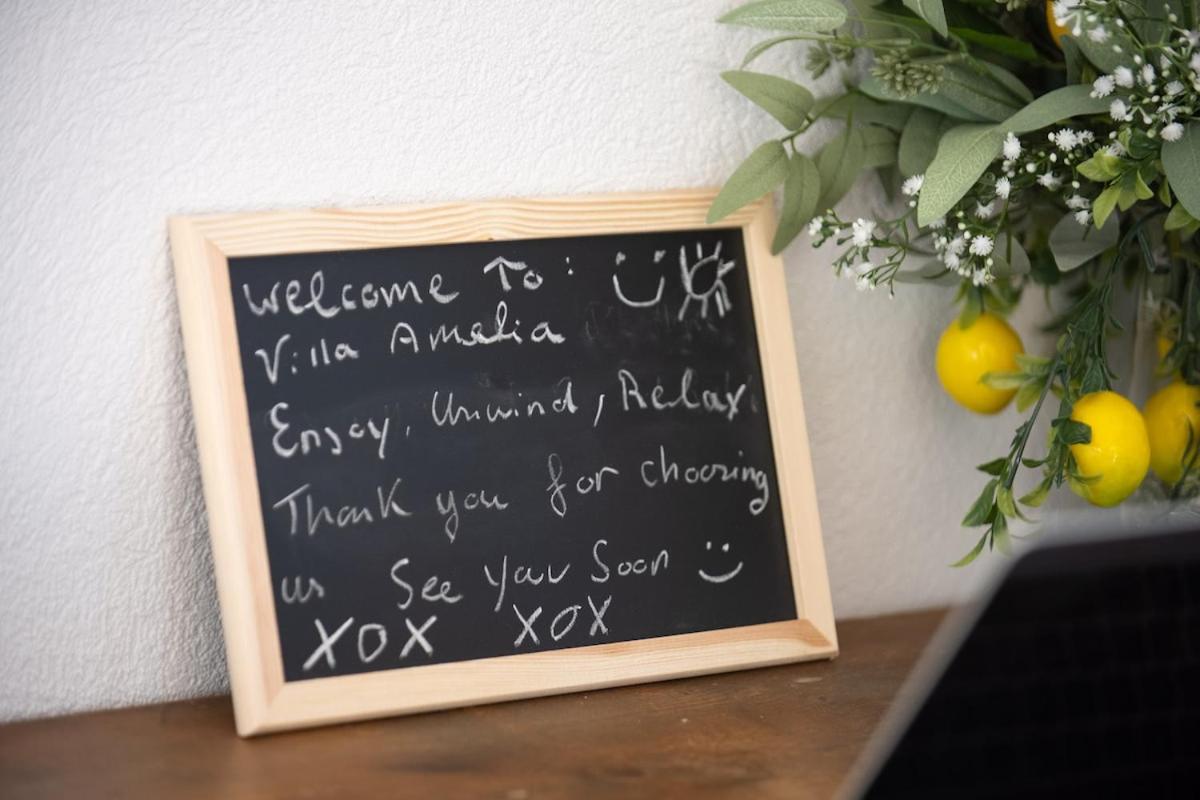 Welcome To:
Villa Amalia
Enjoy, Unwind, Relax
Thank you for choosing
us See you Soon
XOX XOX